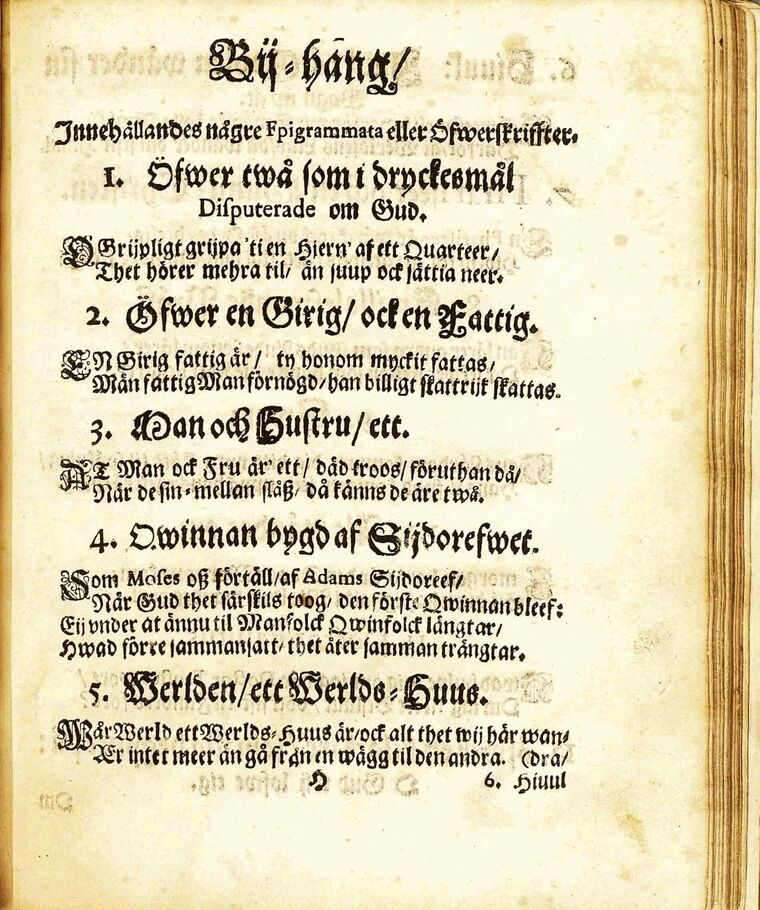 Bij-häng/
Innehållandes någre Epigrammata eller Öfwerskriffter.
1. Öfwer twå som i dryckesmål
Disputerade om Gud.
OGrijpligt grijpa 'ti en Hiern' af ett Quarteer/
Thet hörer mehra til/ än suup ock sättia neer.
2. Öfwer en Girig/ ock en Fattig.
EN Girig fattig är/ ty honom myckit fattas/
Män fattig Man förnögd/ han billigt skattrijk skattas.
3. Man och Hustru/ ett.
AT Man ock Fru är' ett/ däd troos/ föruthan då/
När de sin-mellan slåß/ då känns de äre twå.
4. Qwinnan bygd af Sijdorefwet.
Som Moses oß förtäll/ af Adams Sijdoreef/
När Gud thet särskils toog/ den förste Qwinnan bleef:
Eij vnder at ännu til Manfolck Qwinfolck längtar/
Hwad förre sammansatt/ thet åter samman trängtar.
5. Werlden/ ett Werlds-Huus.
Wår Werld ett Werlds-Huus är/ ock alt thet wij här wan-
Är intet meer än gå från en wägg til den andra. (dra/
H 6. Hiuul